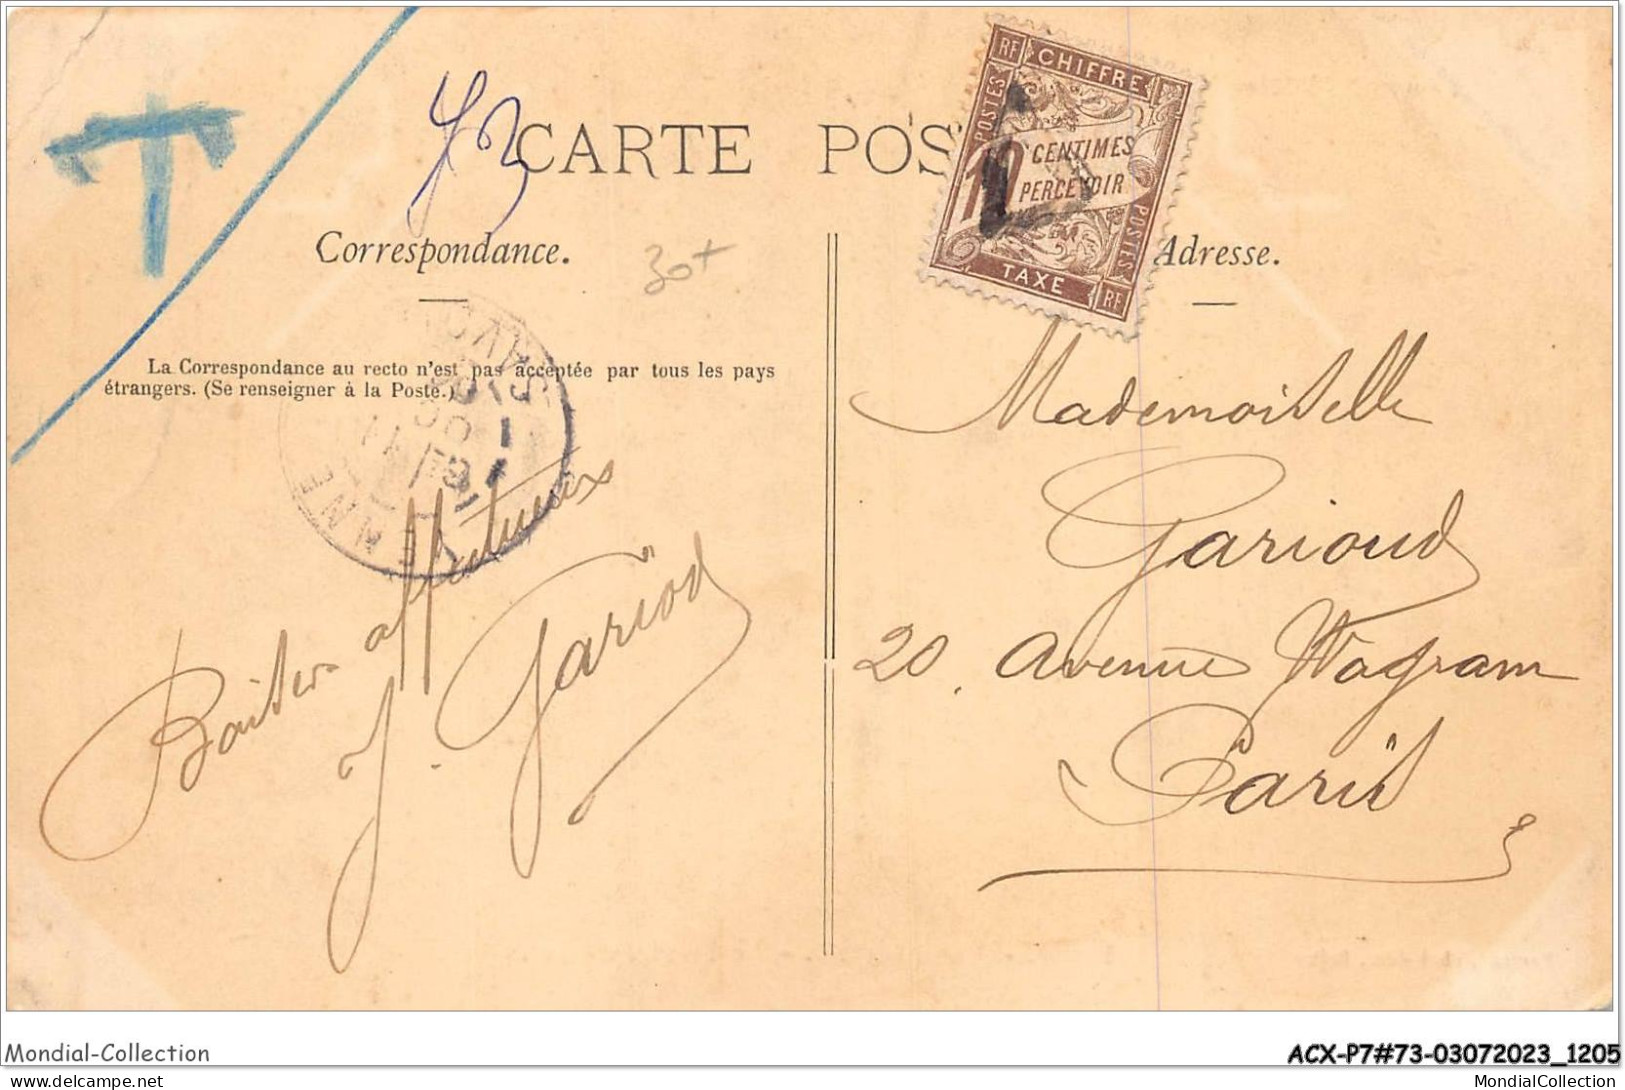 T
CARTE POS
Correspondance.
30+
La Correspondance au recto n'est pas acceptée par tous les pays
étrangers. (Se renseigner à la Poste.)
YENNE
SAVO
Baisers affectueux
J. Gariod
RF CHIFFRE
POSTES
10 CENTIMES
PERCEVOIR
POSTES
TAXE RF
Adresse.
Mademoiselle
Garioud
20, Avenue Wagram
Paris
Mondial-Collection
ACX-P7#73-03072023_1205
delcampe.net
MondialCollection